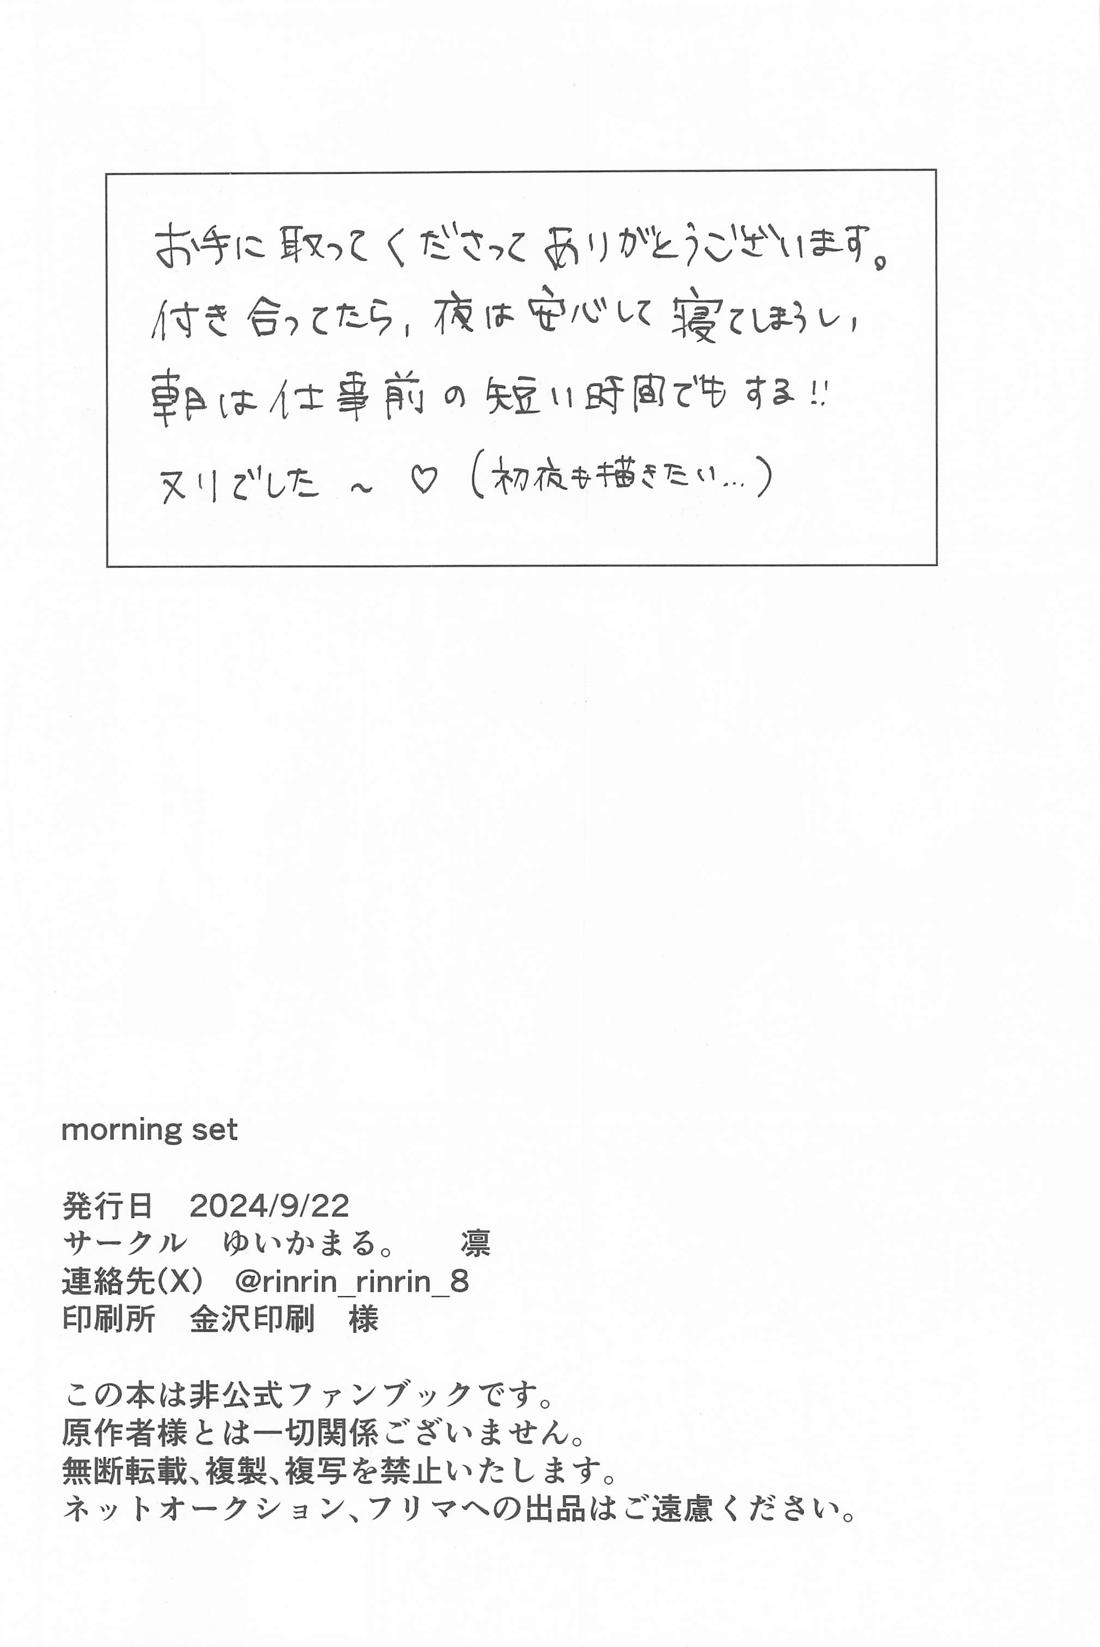 お手に取ってくださってありがとうございます。
付き合ってたら、夜は安心して寝てしまうし、
朝は仕事前の短い時間でもする!!
ヌリでした ～ ♡ (初夜も描きたい…)
morning set
発行日　2024/9/22
サークル　ゆいかまる。　凛
連絡先(X)　@rinrin_rinrin_8
印刷所　金沢印刷　様
この本は非公式ファンブックです。
原作者様とは一切関係ございません。
無断転載、複製、複写を禁止いたします。
ネットオークション、フリマへの出品はご遠慮ください。